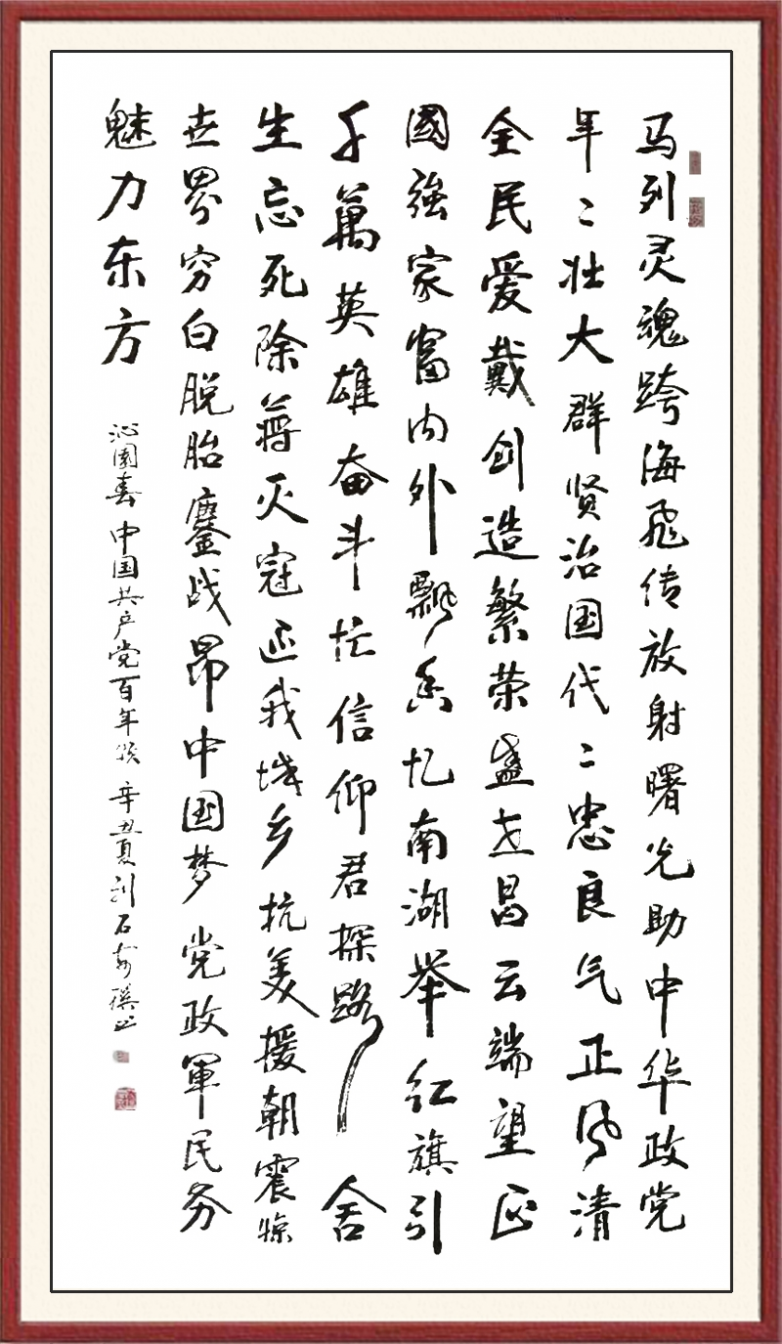 马列灵魂跨海飞传放射曙光助中华政党
年〻壮大群贤治国代〻忠良气正风清
全民爱戴创造繁荣盛世昌云端望正
國強家富内外飘香忆南湖举红旗引
千萬英雄奋斗忙信仰君探路舍
生忘死除蒋灭寇还我城乡抗美援朝震惊
世界穷白脱胎鏖战昂中国梦党政軍民务
魅力东方
沁園春 中国共产党百年颂 辛丑夏刘石